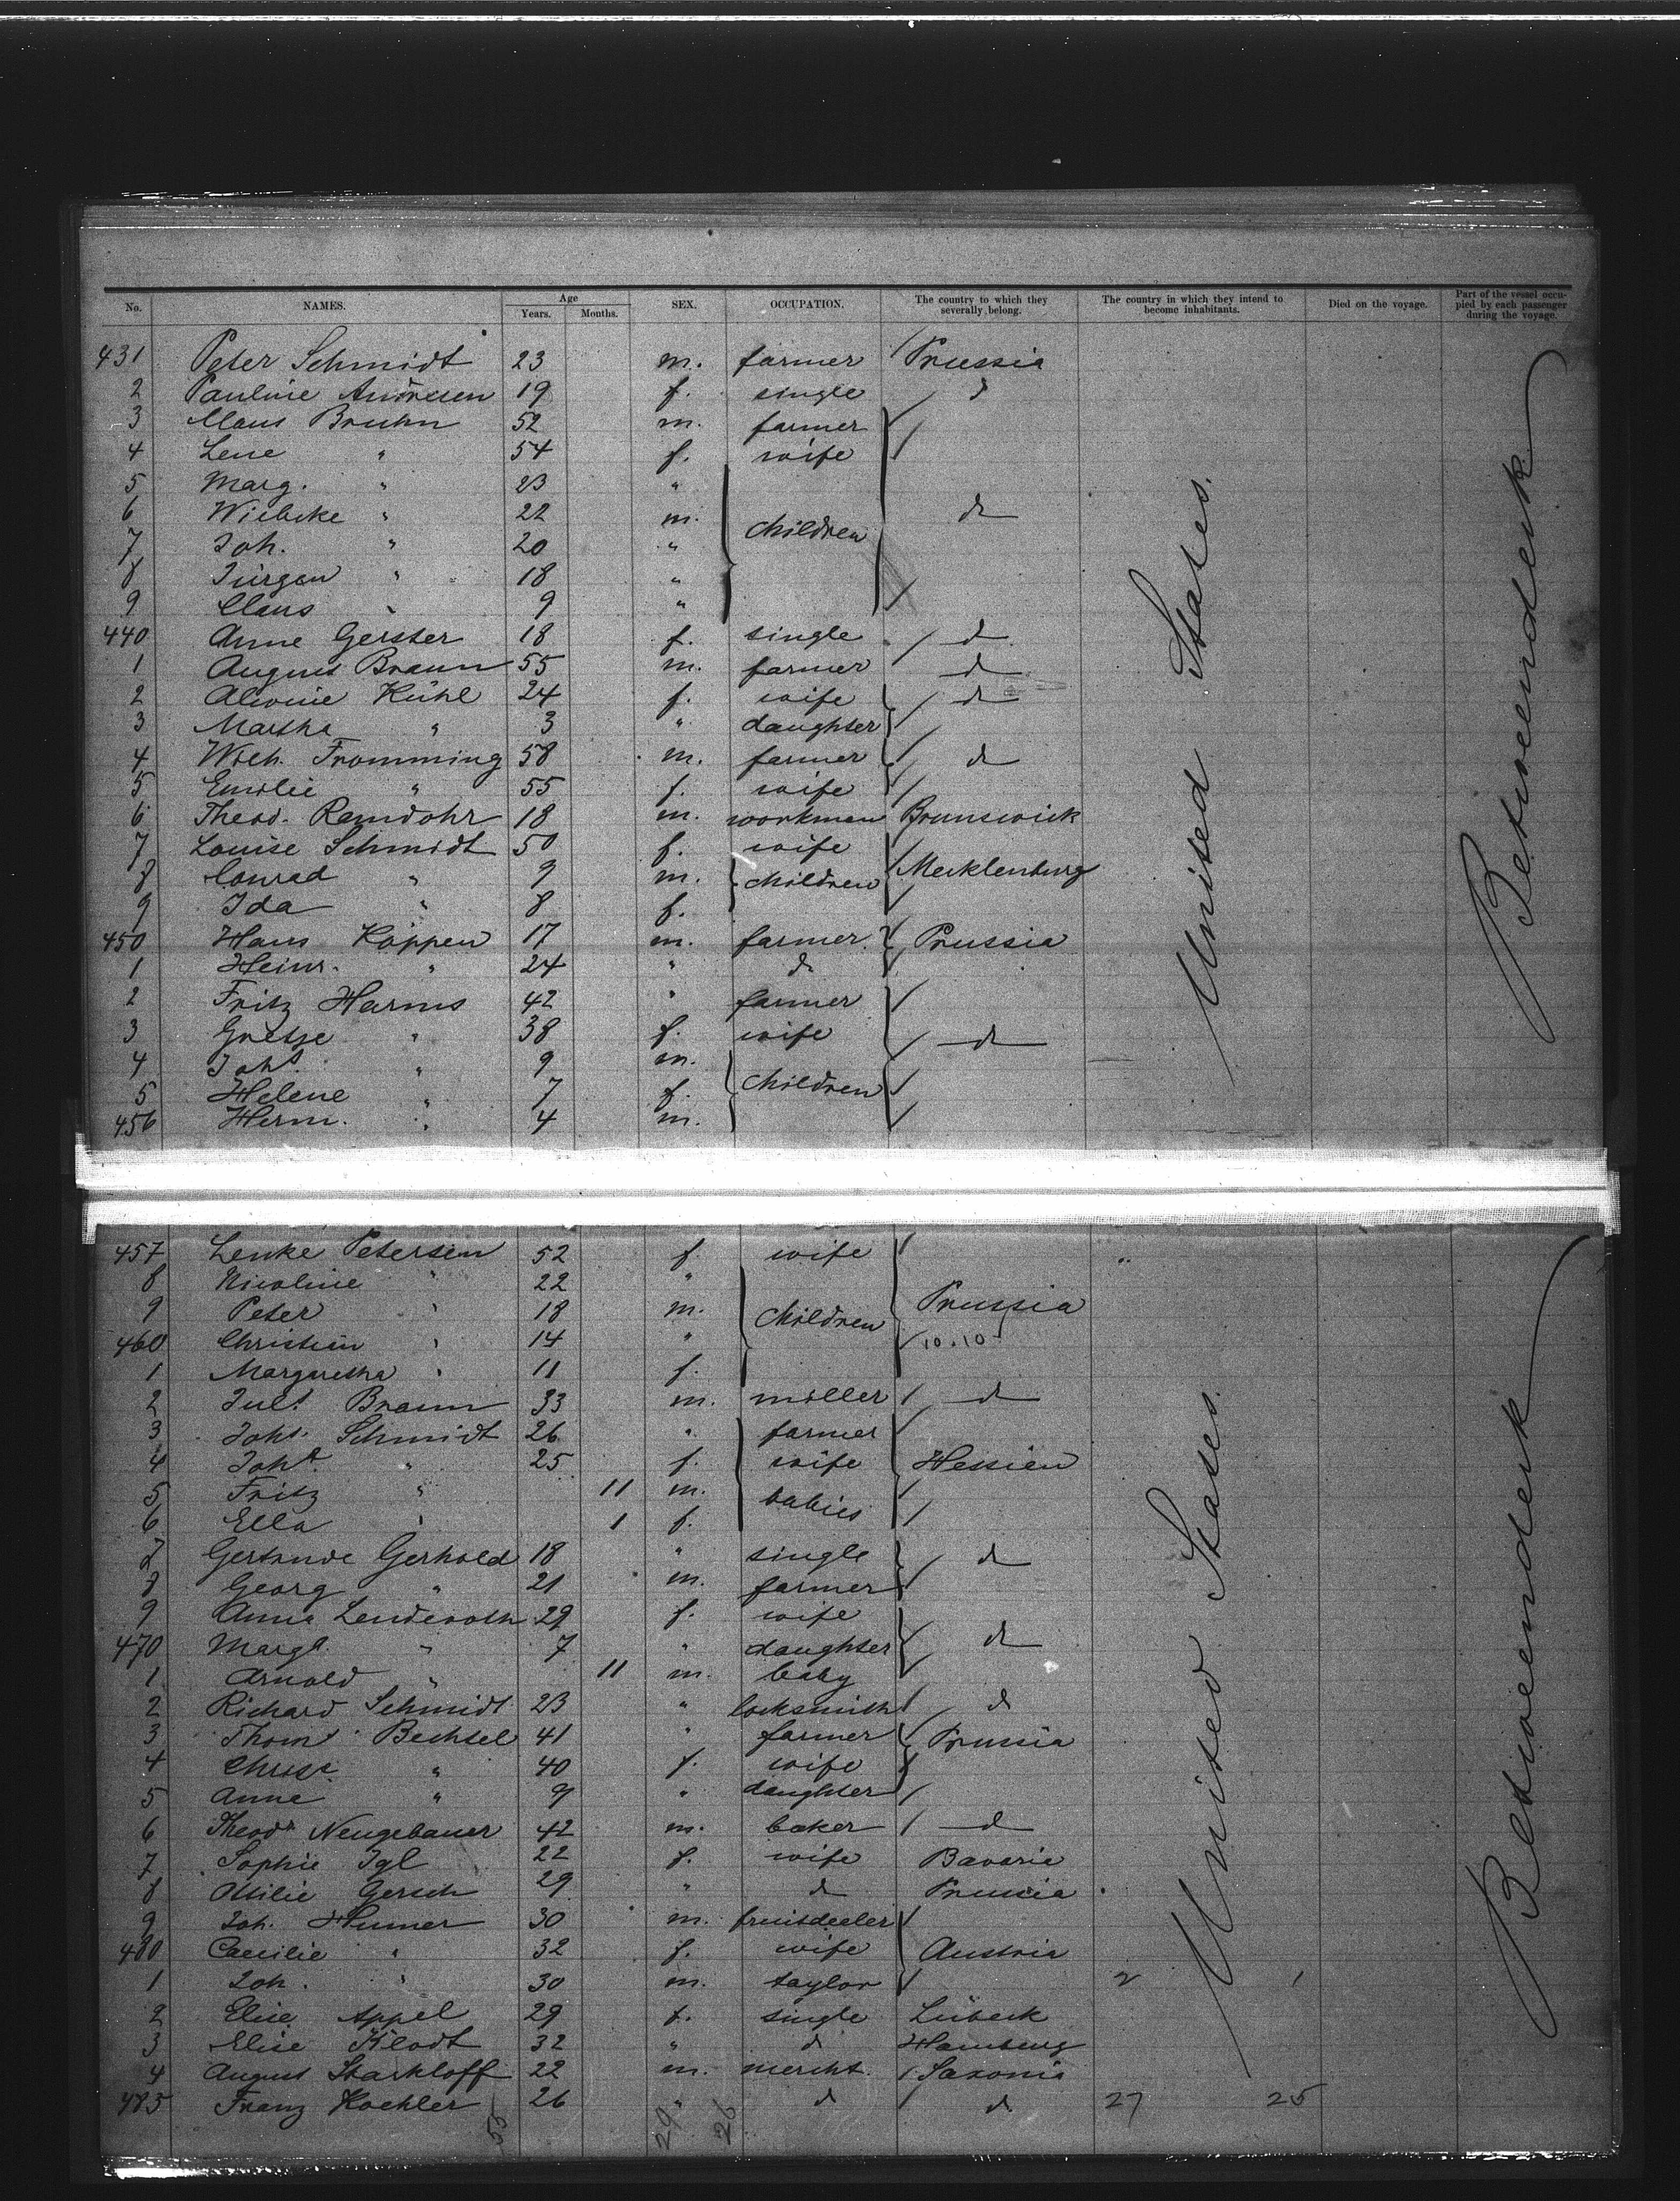 No. NAMES. Age Years. Months. SEX. OCCUPATION. The country to which they severally belong. The country in which they intend to become inhabitants. Died on the voyage. Part of the vessel occupied by each passenger during the voyage.
431 Peter Schmidt 23 m. farmer Prussia
2 Pauline Andresen 19 f. single d
3 Claus Bruhn 52 m. farmer
4 Lene " 54 f. wife
5 Marg. " 23 "
6 Wiebcke " 22 m. children d
7 Joh. " 20 "
8 Jürgen " 18 "
9 Claus " 9 "
440 Anne Gerster 18 f. single d
1 August Braun 55 m. farmer d
2 Alwine Kühl 24 f. wife d
3 Martha " 3 " daughter
4 Wilh. Fromming 58 m. farmer d
5 Emilie " 55 f. wife
6 Theod. Ramdohr 18 m. workman Brunswick
7 Louise Schmidt 50 f. wife
8 Conrad " 9 m. children Mecklenburg
9 Ida " 8 f.
450 Hans Köppen 17 m. farmer Prussia
1 Heinr. " 24 " d
2 Fritz Harms 42 " farmer
3 Gretje " 38 f. wife d
4 Johs. " 9 m. children
5 Helene " 7 f.
456 Herm. " 4 m.
United States.
Betweendeck
457 Lenke Petersen 52 f. wife
8 Nicoline " 22 "
9 Peter " 18 m. children Prussia
460 Christian " 14 " 10.10
1 Margaretha " 11 f.
2 Juls. Braun 33 m. miller d
3 Johs. Schmidt 26 " farmer
4 Joha. " 25 f. wife Hessien
5 Fritz " 11 m. babies
6 Ella " 1 f.
7 Gertrude Gerhold 18 " single d
8 Georg " 21 m. farmer
9 Anna Lenderoth 29 f. wife
470 Margt. " 7 " daughter d
1 Arnold " 11 m. baby
2 Richard Schmidt 23 " locksmith d
3 Thoms. Bechtel 41 " farmer Prussia
4 Christ. " 40 f. wife
5 Anne " 9 " daughter
6 Theodr. Neugebauer 42 m. baker d
7 Sophie Igl 22 f. wife Bavaria
8 Ottilie Gersch 29 " d Prussia
9 Joh. Humer 30 m. fruitdeeler
480 Caecilie " 32 f. wife Austria
1 Joh. " 30 m. taylor 2 1
2 Elise Appel 29 f. single Lübeck
3 Elise Klodt 32 " d Hamburg
4 August Starkloff 22 m. mercht. Saxonia
485 Franz Koehler 26 " d d. 27 25
55 29 26
United States.
Betweendeck